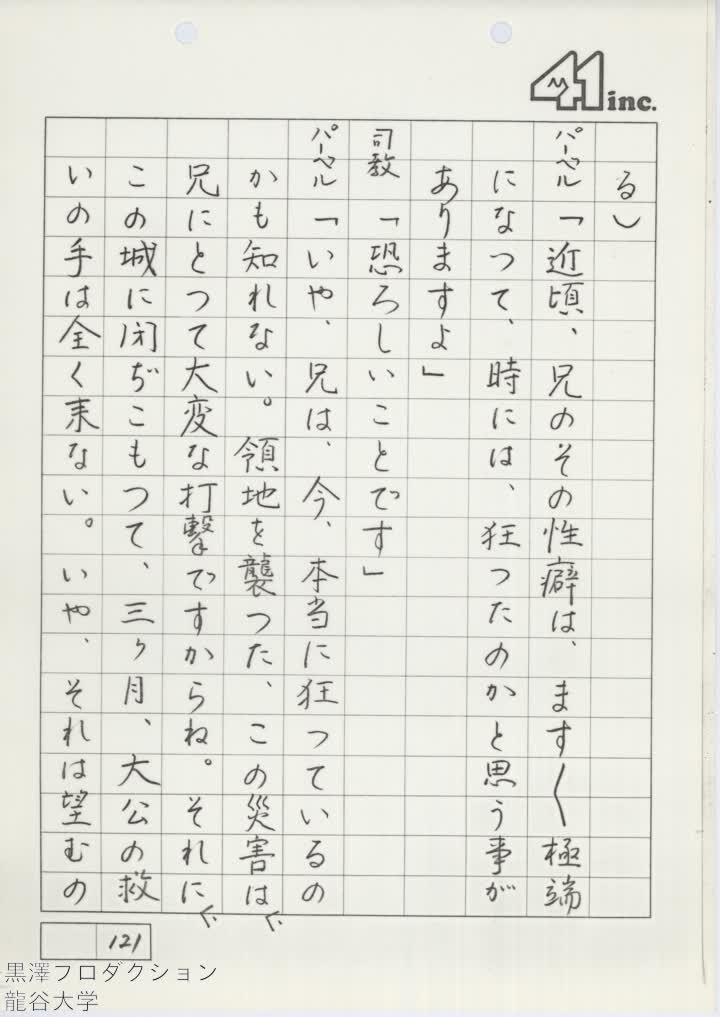 41 inc.
る)
パーベル「近頃、兄のその性癖は、ます〱極端
になつて、時には、狂つたのかと思う事が
ありますよ」
司教「恐ろしいことです」
パーベル「いや、兄は、今、本当に狂っているの
かも知れない。領地を襲つた、この災害は
兄にとつて大変な打撃ですからね。それに
この城に閉ぢこもつて、三ヶ月、大公の救
いの手は全く来ない。いや、それは望むの
121
黒澤プロダクション
龍谷大学